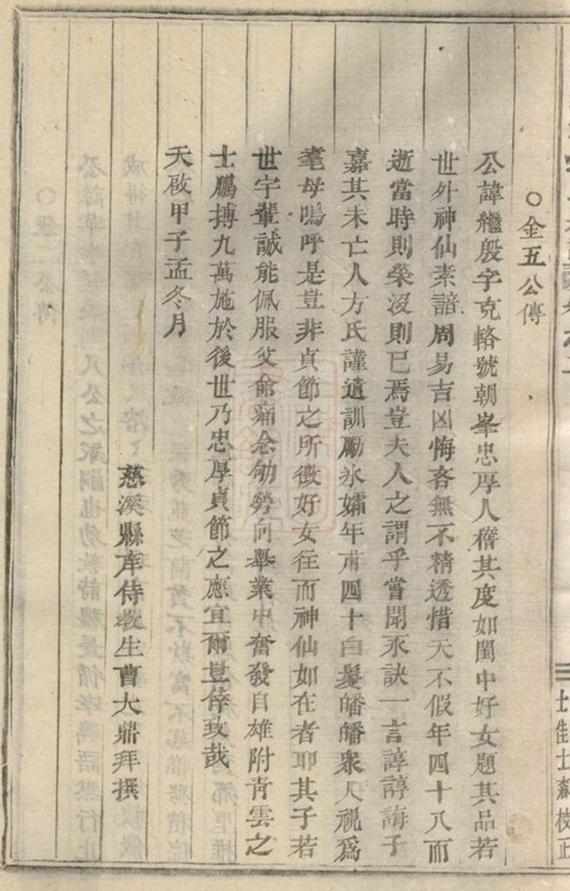 ○金五公傳
公諱繼殷字克輅號朝峯忠厚人稽其度如閨中好女題其品若
世外神仙素諳周易吉凶悔吝無不精透惜天不假年四十八而
逝當時則榮沒則已焉豈夫人之謂乎嘗聞永訣一言諄諄誨子
嘉其未亡人方氏謹遺訓勵氷孀年甫四十白髮皤皤衆人視爲
耄母嗚呼是豈非貞節之所徵好女徃而神仙如在者耶其子若
世宇輩誠能佩服父命痛念劬勞向舉業中奮發自雄附青雲之
士鵬摶九萬施於後世乃忠厚貞節之應宜爾豈倖致哉
天啟甲子孟冬月
慈溪縣庠侍敎生曹大鼎拜撰